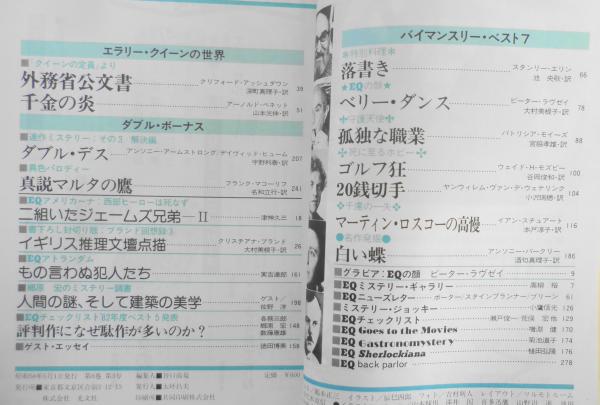 エラリー・クイーンの世界
■「クイーンの定員」より
外務省公文書 クリフォード・アッシュダウン 深町真理子・訳 39
千金の炎 アーノルド・ベネット 山本光伸・訳 51
ダブル・ボーナス
■連作ミステリー:その3 解決編
ダブル・デス アンソニー・アームストロング/デイヴィッド・ヒューム 宇野利泰・訳 207
■異色パロディー
真説マルタの鷹 フランク・マコーリフ 名和立行・訳 241
■EQアメリカーナ:西部ヒーローは死なず
二組いたジェームズ兄弟—II 津神久三 18
■書下ろし封切り版:ブランド回想録③
イギリス推理文壇点描 クリスチアナ・ブランド 大村美根子・訳 26
■EQアトランダム
もの言わぬ犯人たち 実吉達郎 161
■郷原 宏のミステリー調書
人間の謎、そして建築の美学 ゲスト/佐野 洋 196
■EQチェックリスト'82年度ベスト5発表
評判作になぜ駄作が多いのか? 各務三郎 郷原 宏 数藤康雄 148
■ゲスト・エッセイ 徳田博美 158
バイマンスリー・ベスト7
＊特別料理＊
落書き スタンリー・エリン 池 央耿・訳 66
★EQの顔★
ベリー・ダンス ピーター・ラヴゼイ 大村美根子・訳 78
✣守護天使✣
孤独な職業 パトリシア・モイーズ 宮脇孝雄・訳 88
✣死に至るホビー✣
ゴルフ狂 ウェイド・H・モズビー 谷岡俊和・訳 100
20銭切手 ヤンウィレム・ヴァン・デ・ウェテリンク 小沢瑞穂・訳 104
✣千慮の一失✣
マーティン・ロスコーの高慢 イアン・スチュアート 本戸淳子・訳 116
●名作発掘●
白い蝶 アンソニー・バークリー 酒匂真理子・訳 186
■グラビア:EQの顔 ピーター・ラヴゼイ 9
■EQミステリー・ギャラリー 高柳 裕 7
■EQニューズレター ポーター/スタインブランナー/ブリーン 61
■ミステリー・ジョッキー 小鷹信光 126
■EQチェックリスト 瀬戸俊一 花保 宏他 136
■EQ Goes to the Movies 増淵 健 170
■EQ Gastronomystery 菊池道子 174
■EQ Sherlockiana 植田弘隆 176
■EQ back parlor 278
昭和58年5月1日発行 第6巻 第3号
定価 ¥800
株式会社 光文社